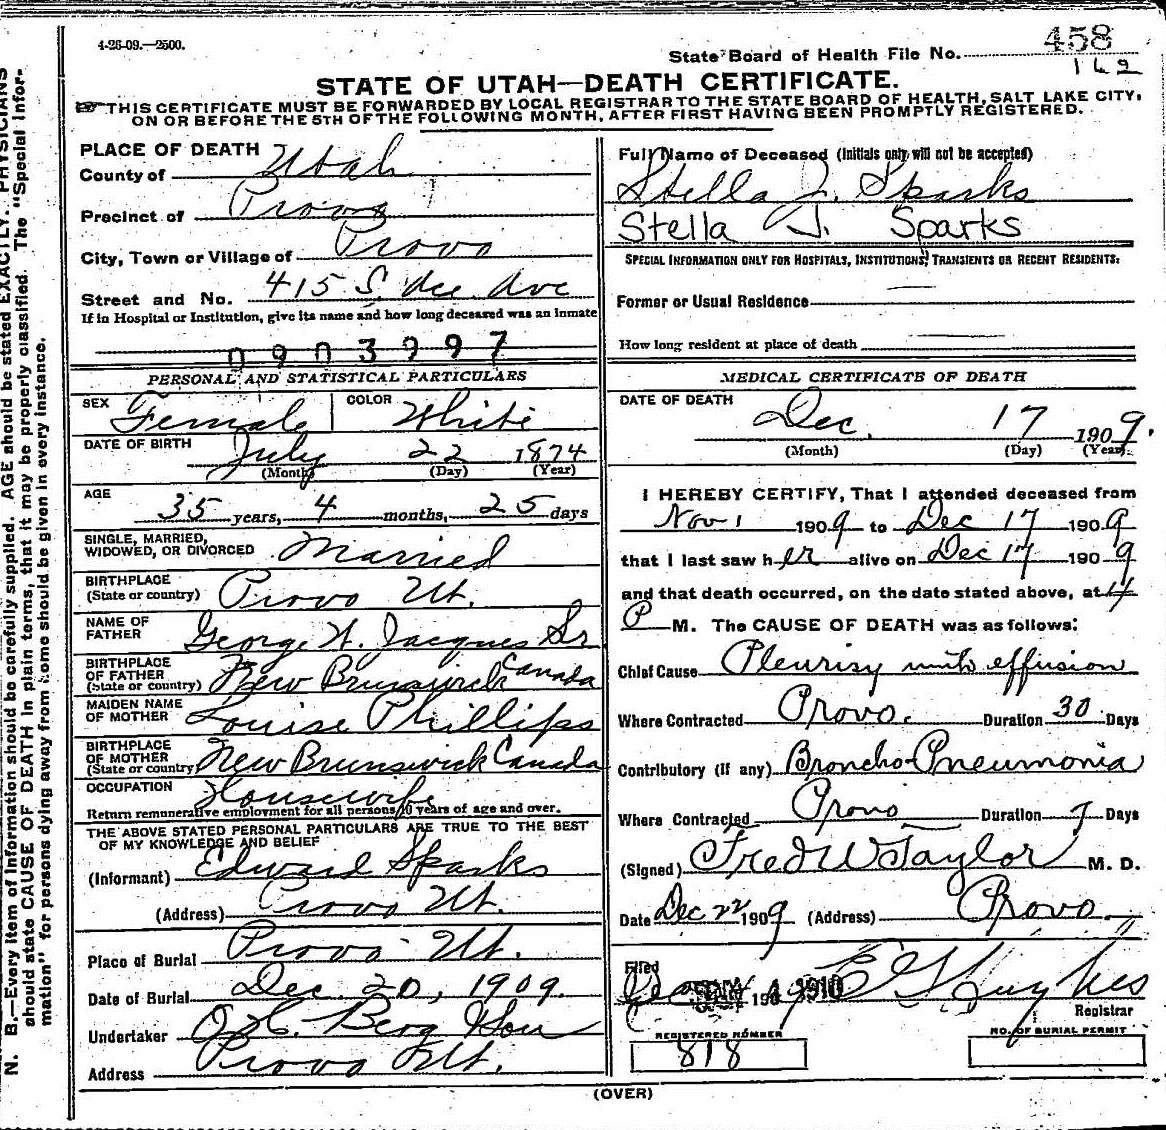 4-26-09.—2500.
State Board of Health File No. 458
162
STATE OF UTAH—DEATH CERTIFICATE.
THIS CERTIFICATE MUST BE FORWARDED BY LOCAL REGISTRAR TO THE STATE BOARD OF HEALTH, SALT LAKE CITY,
ON OR BEFORE THE 5TH OF THE FOLLOWING MONTH, AFTER FIRST HAVING BEEN PROMPTLY REGISTERED.
N. B.—Every item of information should be carefully supplied. AGE should be stated EXACTLY. PHYSICIANS
should state CAUSE OF DEATH in plain terms, that it may be properly classified. The "Special Infor-
mation" for persons dying away from home should be given in every instance.
PLACE OF DEATH
County of Utah
Precinct of Provo
City, Town or Village of Provo
Street and No. 415 S. Ave
If in Hospital or Institution, give its name and how long deceased was an inmate
0903997
PERSONAL AND STATISTICAL PARTICULARS
SEX Female COLOR White
DATE OF BIRTH July 22 1874
(Month) (Day) (Year)
AGE
35 years, 4 months, 25 days
SINGLE, MARRIED,
WIDOWED, OR DIVORCED Married
BIRTHPLACE
(State or country) Provo Ut.
NAME OF
FATHER George W. Jacques Sr
BIRTHPLACE
OF FATHER
(State or country) New Brunswick Canada
MAIDEN NAME
OF MOTHER Louise Phillips
BIRTHPLACE
OF MOTHER
(State or country) New Brunswick Canada
OCCUPATION Housewife
Return remunerative employment for all persons 10 years of age and over.
THE ABOVE STATED PERSONAL PARTICULARS ARE TRUE TO THE BEST
OF MY KNOWLEDGE AND BELIEF
(Informant) Edward Sparks
(Address) Provo Ut.
Place of Burial Provo Ut.
Date of Burial Dec. 20, 1909.
Undertaker Berg & Son
Address Provo Ut.
Full Name of Deceased (Initials only will not be accepted)
Stella J. Sparks
Stella J. Sparks
SPECIAL INFORMATION ONLY FOR HOSPITALS, INSTITUTIONS, TRANSIENTS OR RECENT RESIDENTS:
Former or Usual Residence
How long resident at place of death
MEDICAL CERTIFICATE OF DEATH
DATE OF DEATH
Dec. 17 1909.
(Month) (Day) (Year)
I HEREBY CERTIFY, That I attended deceased from
Nov 1 1909 to Dec 17 1909
that I last saw her alive on Dec 17 1909
and that death occurred, on the date stated above, at 4
P M. The CAUSE OF DEATH was as follows:
Chief Cause Pleurisy with effusion
Where Contracted Provo. Duration 30 Days
Contributory (if any) Broncho Pneumonia
Where Contracted Provo Duration 7 Days
(Signed) Fred W Taylor M. D.
Date Dec 22 1909 (Address) Provo.
Filed 190 1910 Hughes
Registrar
REGISTERED NUMBER
818
NO. OF BURIAL PERMIT
(OVER)